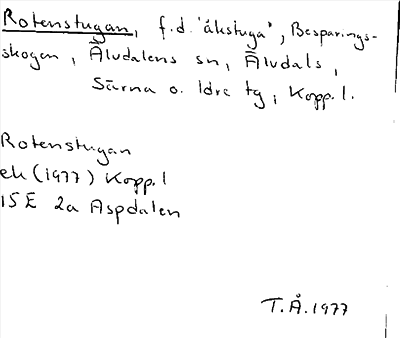 Rotenstugan, f.d. "åkstuga", Besparings-
skogen, Älvdalens sn, Älvdals,
Särna o. Idre tg, Kopp. l.
Rotenstugan
ek (1977) Kopp. l
15 E 2a Aspdalen
T.Å. 1977